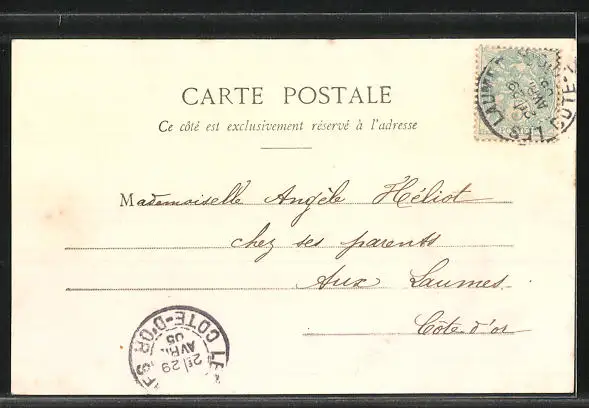 CARTE POSTALE
Ce côté est exclusivement réservé à l'adresse
Mademoiselle Angèle Héliot
chez ses parents
Aux Laumes
Côte d'or
LES LAUMES
COTE-D'OR
2E 29
AVRIL
05